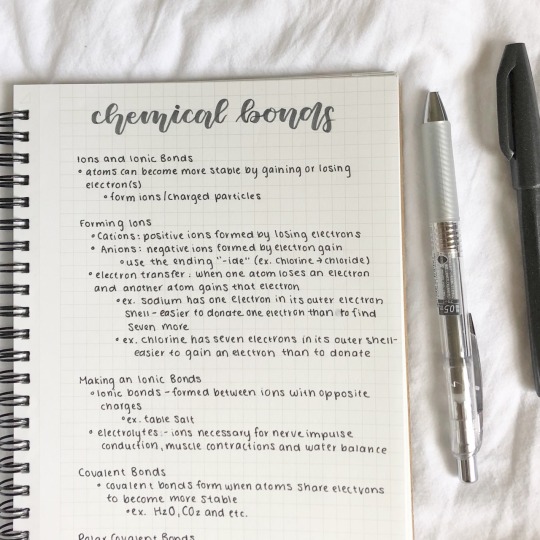 chemical bonds
Ions and Ionic Bonds
• atoms can become more stable by gaining or losing
electron(s)
• form ions/charged particles
Forming Ions
• Cations: positive ions formed by losing electrons
• Anions: negative ions formed by electron gain
• use the ending "-ide" (ex. chlorine → chloride)
• electron transfer: when one atom loses an electron
and another atom gains that electron
• ex. sodium has one electron in its outer electron
shell - easier to donate one electron than to find
seven more
• ex. chlorine has seven electrons in its outer shell -
easier to gain an electron than to donate
Making an Ionic Bonds
• Ionic bonds - formed between ions with opposite
charges
• ex. table salt
• electrolytes - ions necessary for nerve impulse
conduction, muscle contractions and water balance
Covalent Bonds
• covalent bonds form when atoms share electrons
to become more stable
• ex. H2O, CO2 and etc.
Polar Covalent Bonds
05